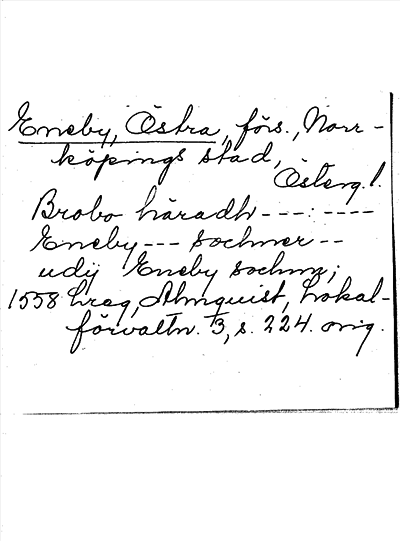 Eneby, Östra, förs., Norr-
köpings stad,
Österg. l.
Brobo häradh ---:----
Eneby --- sochner --
udij Eneby sochnn;
1558 Lreg, Almquist, Lokal-
förvaltn. 3, s. 224. orig.